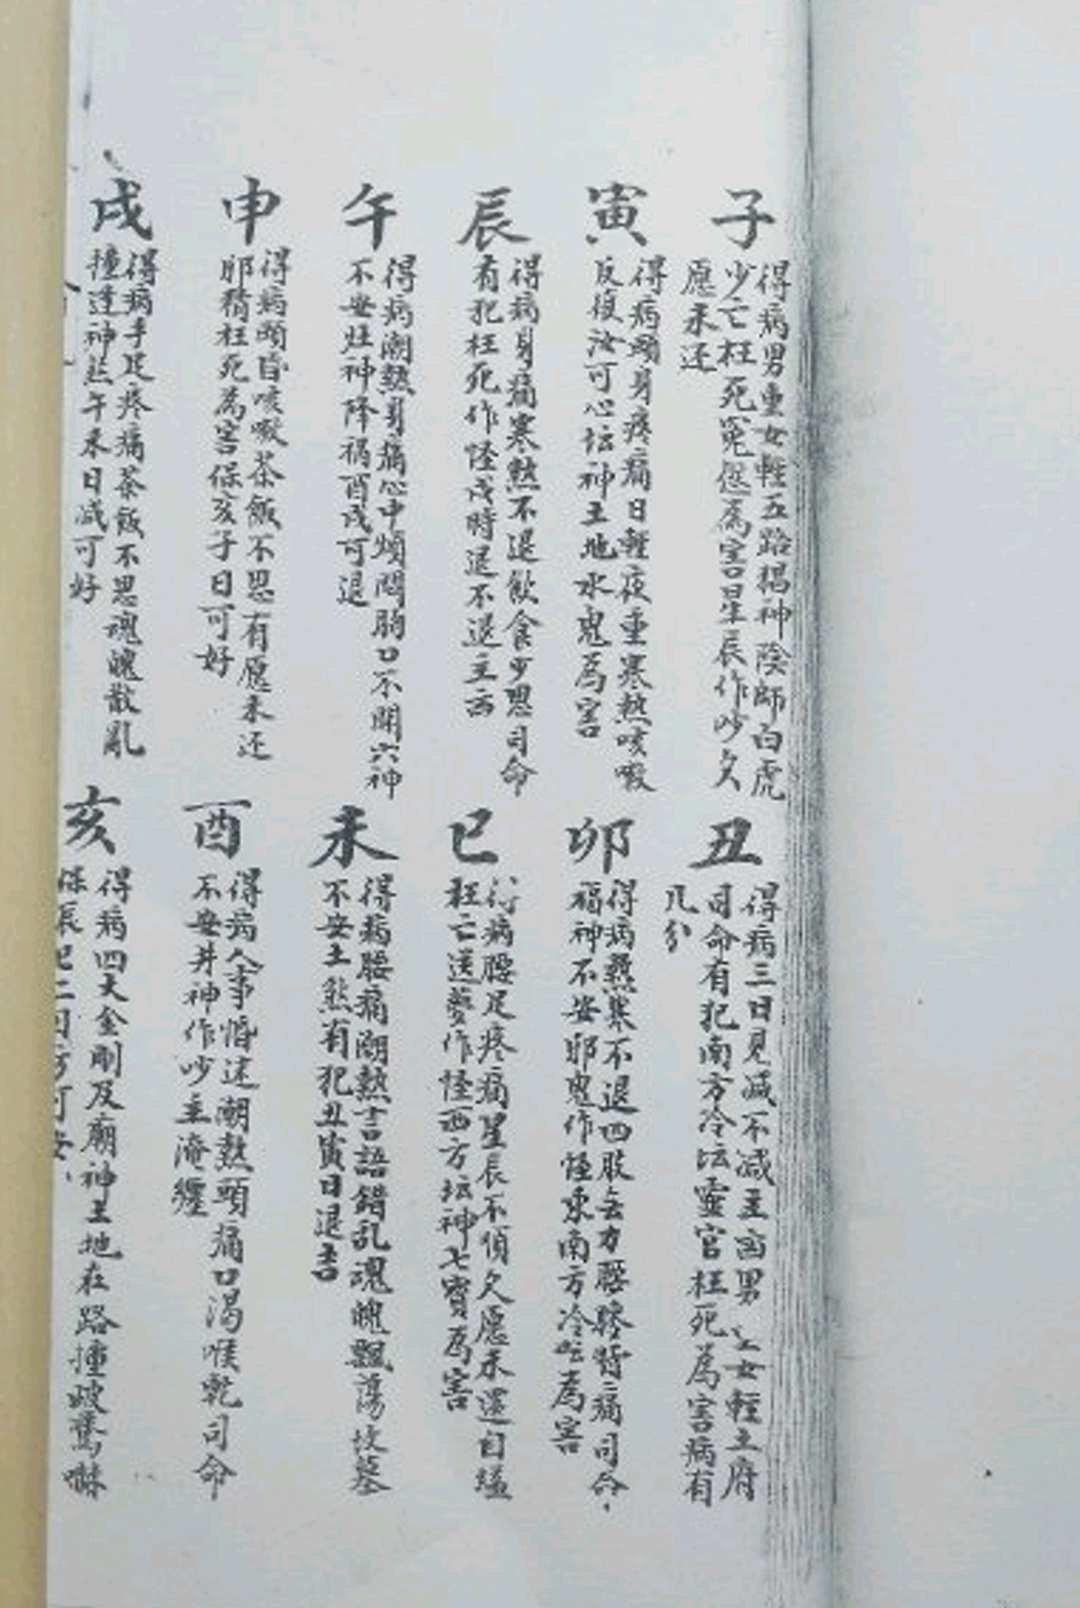 子
得病男重女輕五路猖神陰師白虎
少亡枉死冤愆為害星辰作吵久
愿未还
丑
得病三日見減不減主凶男女輕土府
司命有犯南方冷坛靈官枉死為害病有
几分
寅
得病頭身疼痛日輕夜重寒熱咳嗽
反復汝可心坛神土地水鬼為害
卯
得病熱寒不退四肢無力腰膝背痛司命
福神不安邪鬼作怪東南方冷坛為害
辰
得病身痛寒熱不退飲食少思司命
有犯枉死作怪戌時退不退主凶
巳
得病腰足疼痛星辰不順久愿未還自縊
枉亡送夢作怪西方坛神七寶為害
午
得病潮熱身痛心中煩悶胸口不開六神
不安灶神降禍酉戌可退
未
得病腰痛潮熱言語錯乱魂魄飄蕩坟墓
不安土煞有犯丑寅日退吉
申
得病頭昏咳嗽茶飯不思有愿未还
邪精枉死為害保亥子日可好
酉
得病人事惛迷潮熱頭痛口渴喉乾司命
不安井神作吵主淹纏
戌
得病手足疼痛茶飯不思魂魄散乱
撞達神煞午未日减可好
亥
得病四大金剛及廟神土地在路撞驚嚇
保辰巳二日方可安